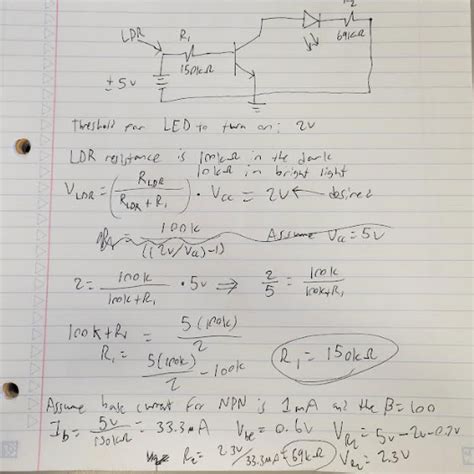 LDR R₁ R₂
150kΩ 69kΩ
± 5v
Threshold for LED to turn on: 2V
LDR resistance is 100kΩ in the dark
10kΩ in bright light
V_LDR = (R_LDR / (R_LDR + R₁)) · Vcc = 2V ← desired
100k / ((2v/Vcc)-1) Assume Vcc = 5v
2 = 100k / (100k + R₁) · 5v ⇒ 2/5 = 100k / (100k + R₁)
100k + R₁ = 5(100k) / 2
R₁ = 5(100k) / 2 - 100k R₁ = 150kΩ
Assume base current for NPN is 1mA and the β = 100
I_b = 5v / 150kΩ = 33.3µA V_be = 0.6V V_R₂ = 5v - 2v - 0.7v
R₂ = 2.3V / 33.3µA = 69kΩ V_R₂ = 2.3V